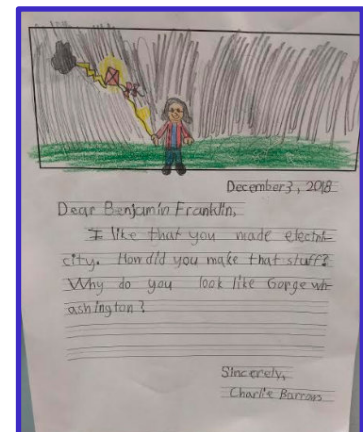 December 3, 2018
Dear Benjamin Franklin,
I like that you made electri
city. How did you make that stuff?
Why do you look like Gorge wh
ashington?
Sincerely,
Charlie Barrows